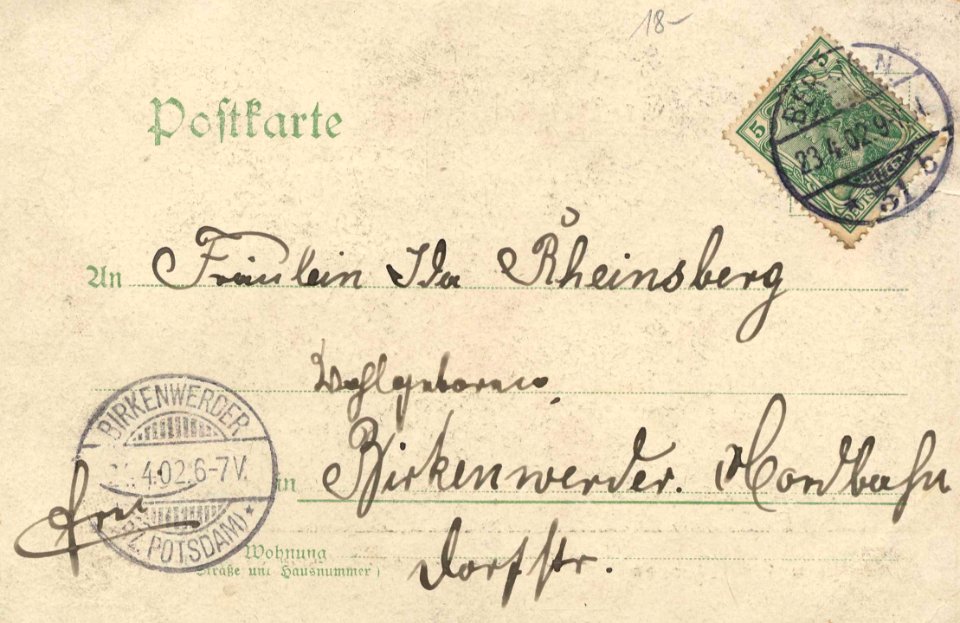 18-
Postkarte
5 5
BER N
23.4.02 9- V
31 b
An Fräulein Ida Rheinsberg
Wohlgeboren
BIRKENWERDER
.4.02.6-7V.
BZ. POTSDAM)
in Birkenwerder. Nordbahn
frei
Wohnung
(Straße und Hausnummer)
Dorfstr.